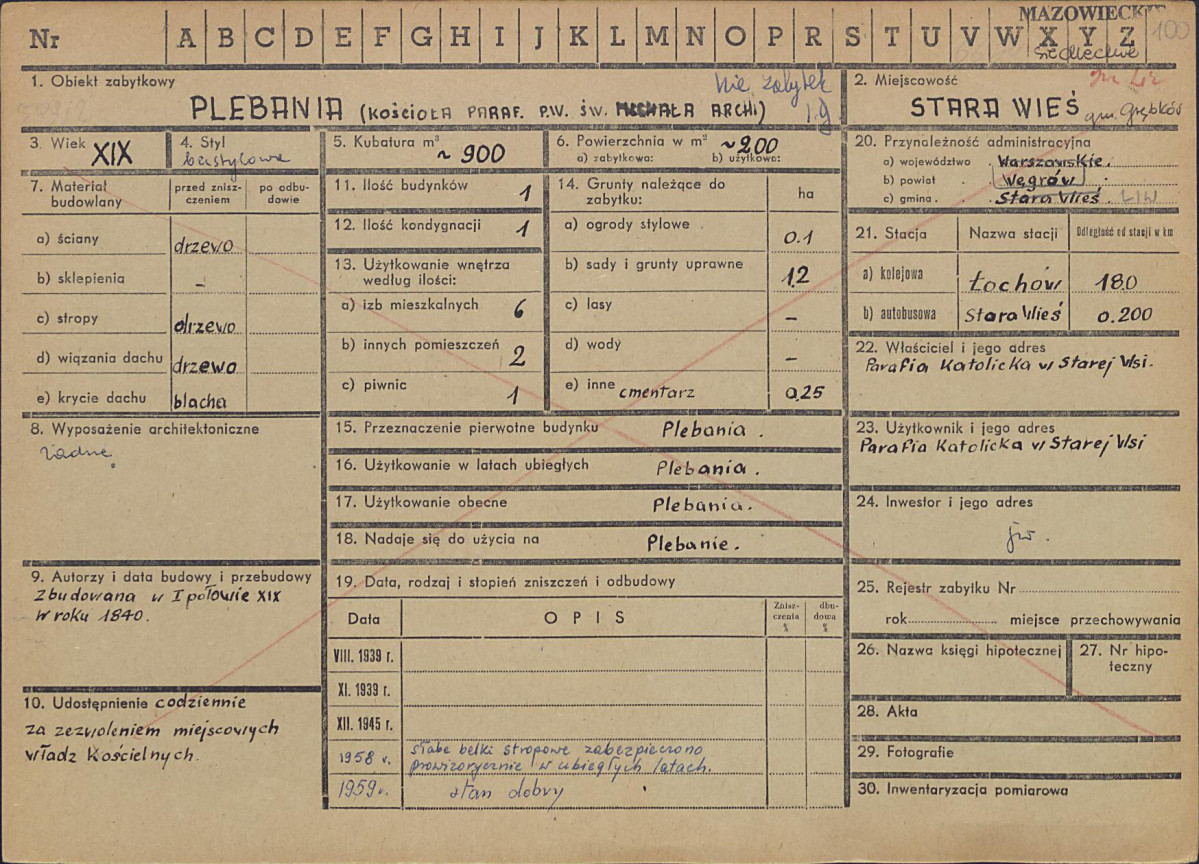 MAZOWIECKIE
Nr A B C D E F G H I J K L M N O P R S T U V W X Y Z 100
siedleckie
1. Obiekt zabytkowy
nie zabytek
PLEBANIA (KOŚCIOŁA PARAF. P.W. ŚW. MICHAŁA ARCHI)
2. Miejscowość
STARA WIEŚ gm. Grębków
3. Wiek XIX
4. Styl bezstylowe
5. Kubatura m³ ~ 900
6. Powierzchnia w m² ~ 200
a) zabytkowa: b) użytkowa:
7. Materiał budowlany
przed zniszczeniem
po odbudowie
a) ściany drzewo
b) sklepienia –
c) stropy drzewo
d) wiązania dachu drzewo
e) krycie dachu blacha
8. Wyposażenie architektoniczne
żadne.
9. Autorzy i data budowy i przebudowy
Zbudowana w I połowie XIX
w roku 1840.
10. Udostępnienie codziennie
za zezwoleniem miejscowych
władz Kościelnych.
11. Ilość budynków 1
12. Ilość kondygnacji 1
13. Użytkowanie wnętrza
według ilości:
a) izb mieszkalnych 6
b) innych pomieszczeń 2
c) piwnic 1
14. Grunty należące do
zabytku: ha
a) ogrody stylowe 0.1
b) sady i grunty uprawne 1.2
c) lasy –
d) wody –
e) inne cmentarz 0.25
15. Przeznaczenie pierwotne budynku Plebania.
16. Użytkowanie w latach ubiegłych Plebania.
17. Użytkowanie obecne Plebania.
18. Nadaje się do użycia na Plebanie.
19. Data, rodzaj i stopień zniszczeń i odbudowy
Data OPIS Zniszczenia % dbudowa %
VIII. 1939 r.
XI. 1939 r.
XII. 1945 r.
1958 r. słabe belki stropowe zabezpieczono
prowizorycznie w ubiegłych latach.
1959 r. stan dobry
20. Przynależność administracyjna
a) województwo Warszawskie.
b) powiat Węgrów
c) gmina Stara Wieś. LIW
21. Stacja Nazwa stacji Odległość od stacji w km
a) kolejowa Łochów 18.0
b) autobusowa Stara Wieś 0.200
22. Właściciel i jego adres
Parafia Katolicka w Starej Wsi.
23. Użytkownik i jego adres
Parafia Katolicka w Starej Wsi
24. Inwestor i jego adres
jw.
25. Rejestr zabytku Nr
rok miejsce przechowywania
26. Nazwa księgi hipotecznej
27. Nr hipoteczny
28. Akta
29. Fotografie
30. Inwentaryzacja pomiarowa